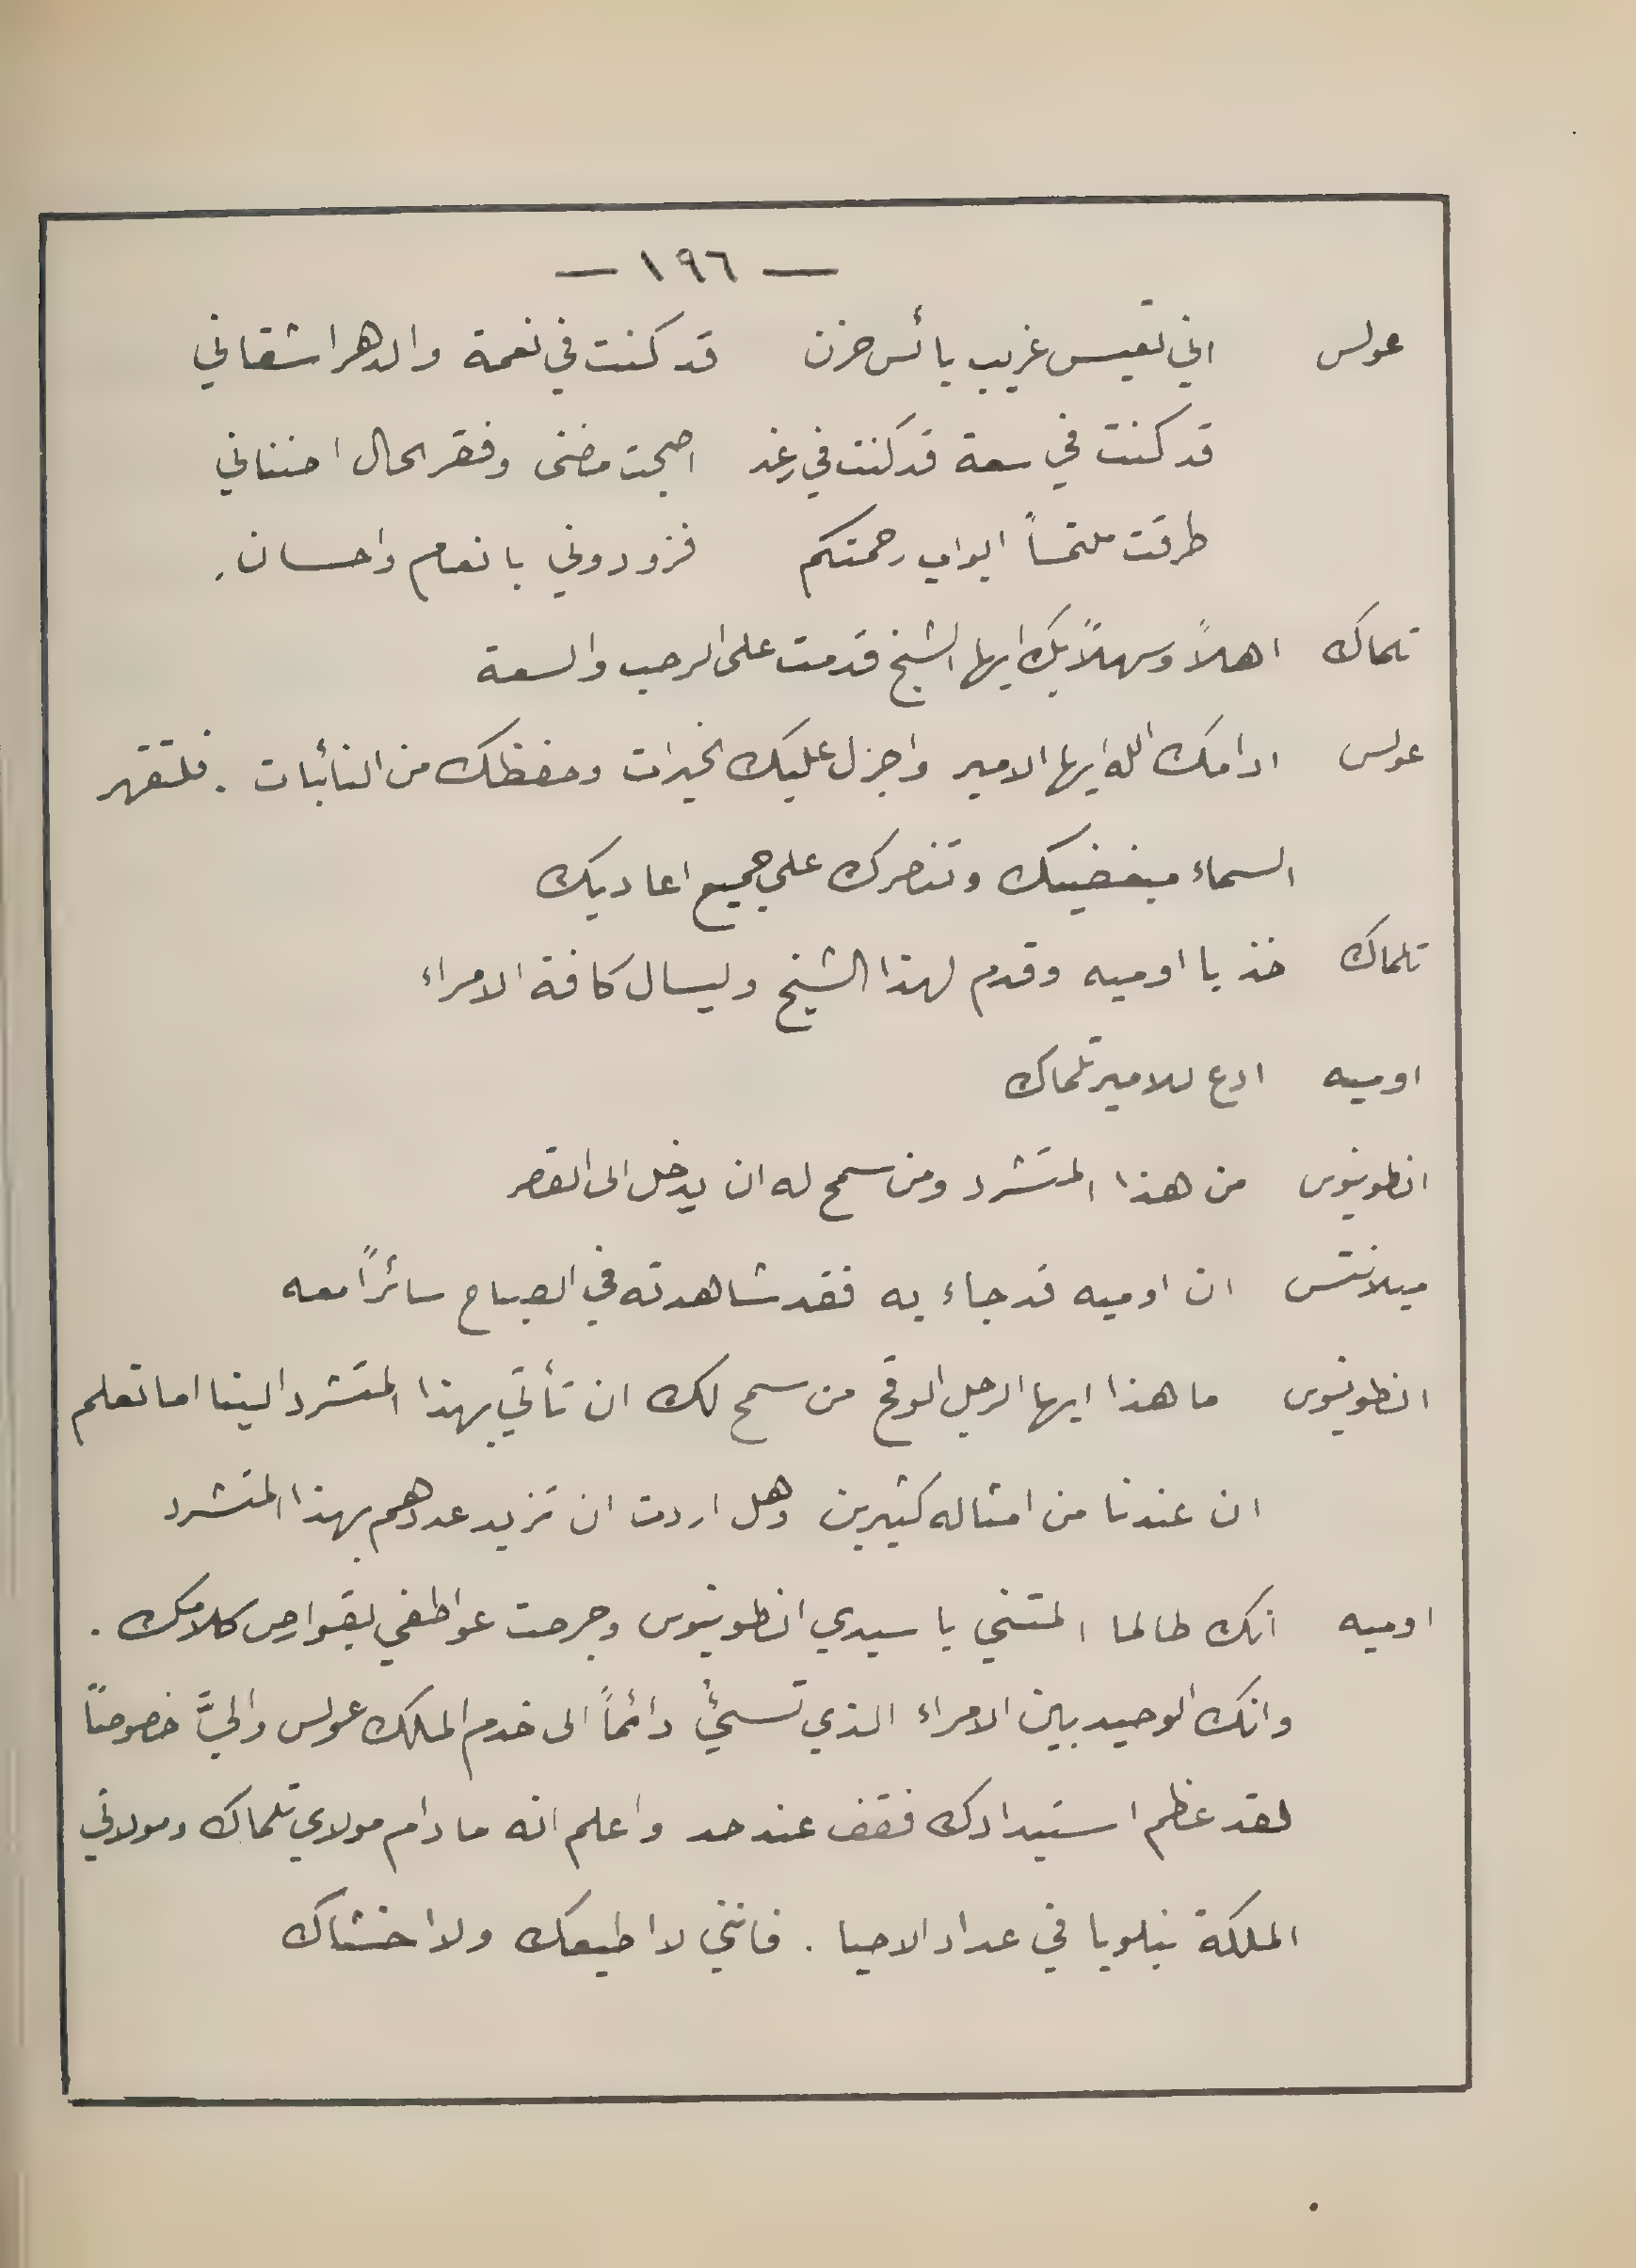 — ١٩٦ —
عولس اني تعيس غريب بائس حزن قد كنت في نعمة والدهر اشقاني
قد كنت في سعة قد كنت في رغد اصبحت مضنى وفقر الحال احناني
طرقت ملتمساً ابواب رحمتكم فزودوني بانعام واحسان.
تلماك اهلاً وسهلاً بك ايها الشيخ قدمت على الرحب والسعة
عولس ادامك الله ايها الامير واجزل عليك الخيرات وحفظك من النائبات . فلتقهر
السماء مبغضيك وتنصرك على جميع اعاديك
تلماك خذ يا اوميه وقدم لهذا الشيخ وليسال كافة الامراء
اوميه ادع للامير تلماك
انطونيوس من هذا المتشرد ومن سمح له ان يدخل الى القصر
ميلانتس ان اوميه قد جاء به فقد شاهدته في الصباح سائراً معه
انطونيوس ما هذا ايها الرجل الوقح من سمح لك ان تأتي بهذا المتشرد الينا اما تعلم
ان عندنا من امثاله كثيرين وهل اردت ان تزيد عددهم بهذا المتشرد
اوميه انك طالما المتني يا سيدي انطونيوس وجرحت عواطفي بقوارص كلامك .
وانك الوحيد بين الامراء الذي تسيئ دائماً الى خدم الملك عولس واليَّ خصوصاً
لقد عظم استبدادك فقف عند حد واعلم انه ما دام مولاي تلماك ومولاتي
الملكة بنلوبا في عداد الاحيا . فانني لا اطيعك ولا اخشاك